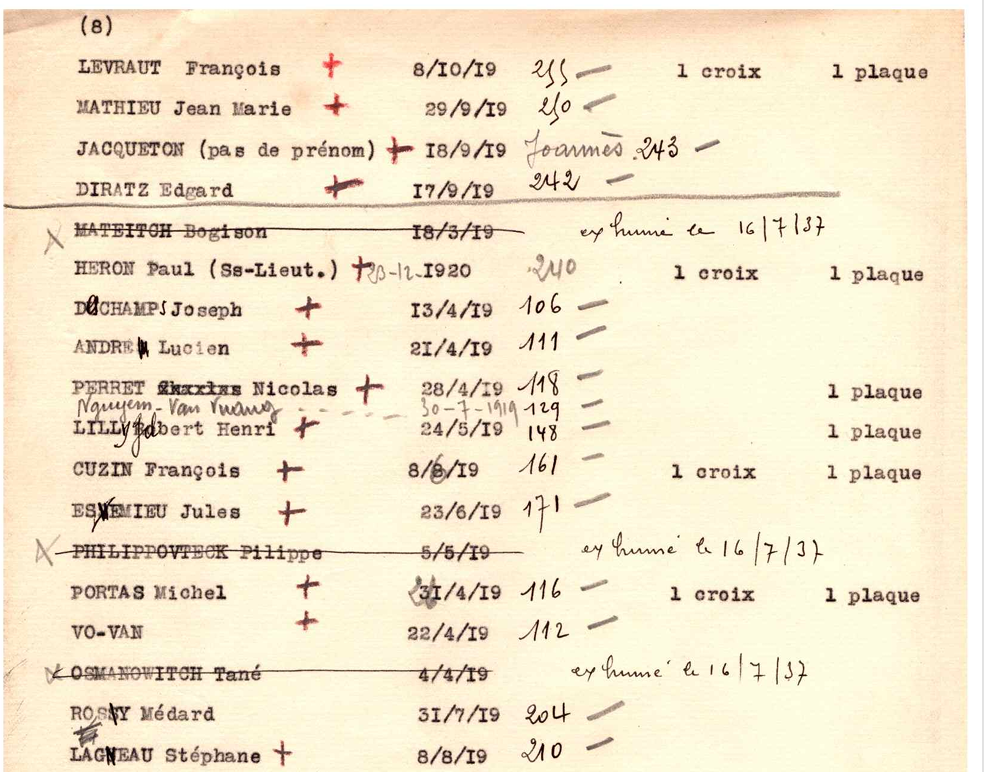 (8)
LEVRAUT François + 8/IO/I9 255 — 1 croix 1 plaque
MATHIEU Jean Marie + 29/9/I9 250 —
JACQUETON (pas de prénom) + I8/9/I9 Joannès 243 —
DIRATZ Edgard + I7/9/I9 242 —
X MATEITCH Bogison I8/3/I9 exhumé le 16/7/37
HERON Paul (Ss-Lieut.) + 23-12-I920 240 1 croix 1 plaque
DUCHAMPS Joseph + I3/4/I9 106 —
ANDRE Lucien + 2I/4/I9 111 —
PERRET Nicolas + 28/4/I9 118 — 1 plaque
Nguyem-Van 30-7-1919 129 —
LILLY Robert Henri + 24/5/I9 148 — 1 plaque
CUZIN François + 8/6/I9 161 — 1 croix 1 plaque
ESVEMIEU Jules + 23/6/I9 171 —
X PHILIPPOVTECK Pilippe 5/5/I9 exhumé le 16/7/37
PORTAS Michel + /4/I9 116 — 1 croix 1 plaque
VO-VAN + 22/4/I9 112 —
X OSMANOWITCH Tané 4/4/I9 exhumé le 16/7/37
ROSSY Médard 3I/7/I9 204 —
LAGNEAU Stéphane + 8/8/I9 210 —